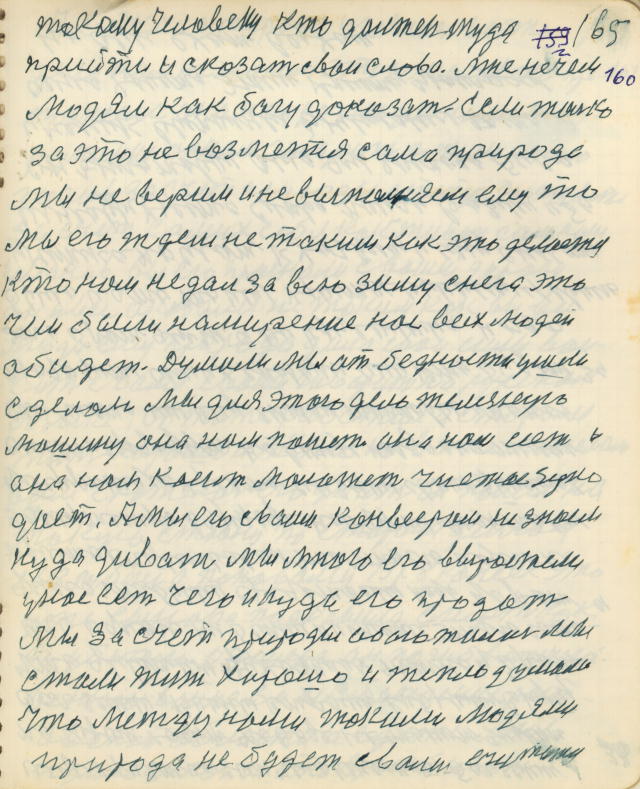 такому человеку кто должен туда 165
прийти и сказат свои слова. Мне нечем 160
людям как богу доказат. Если только
за это не возметься сама природа
Мы не верим и не выполняем ему то
Мы его ждем не таким как это делается
кто нам не дал за всю зиму снега это
чии были намирение нас всех людей
абидет. Думали мы от бедности ушли
сделали мы для этого дель железную
машину она нам пашет она нам сеет
она нам косит молотет чистае зерно
дает. А мы его своим конвеером не знаем
куда диват мы много его выростели
у нас ест чего и куда его продат
Мы за счет природы абогатилис мы
стали жит хорошо и тепло думали
что между нами такими людями
природа не будет своими